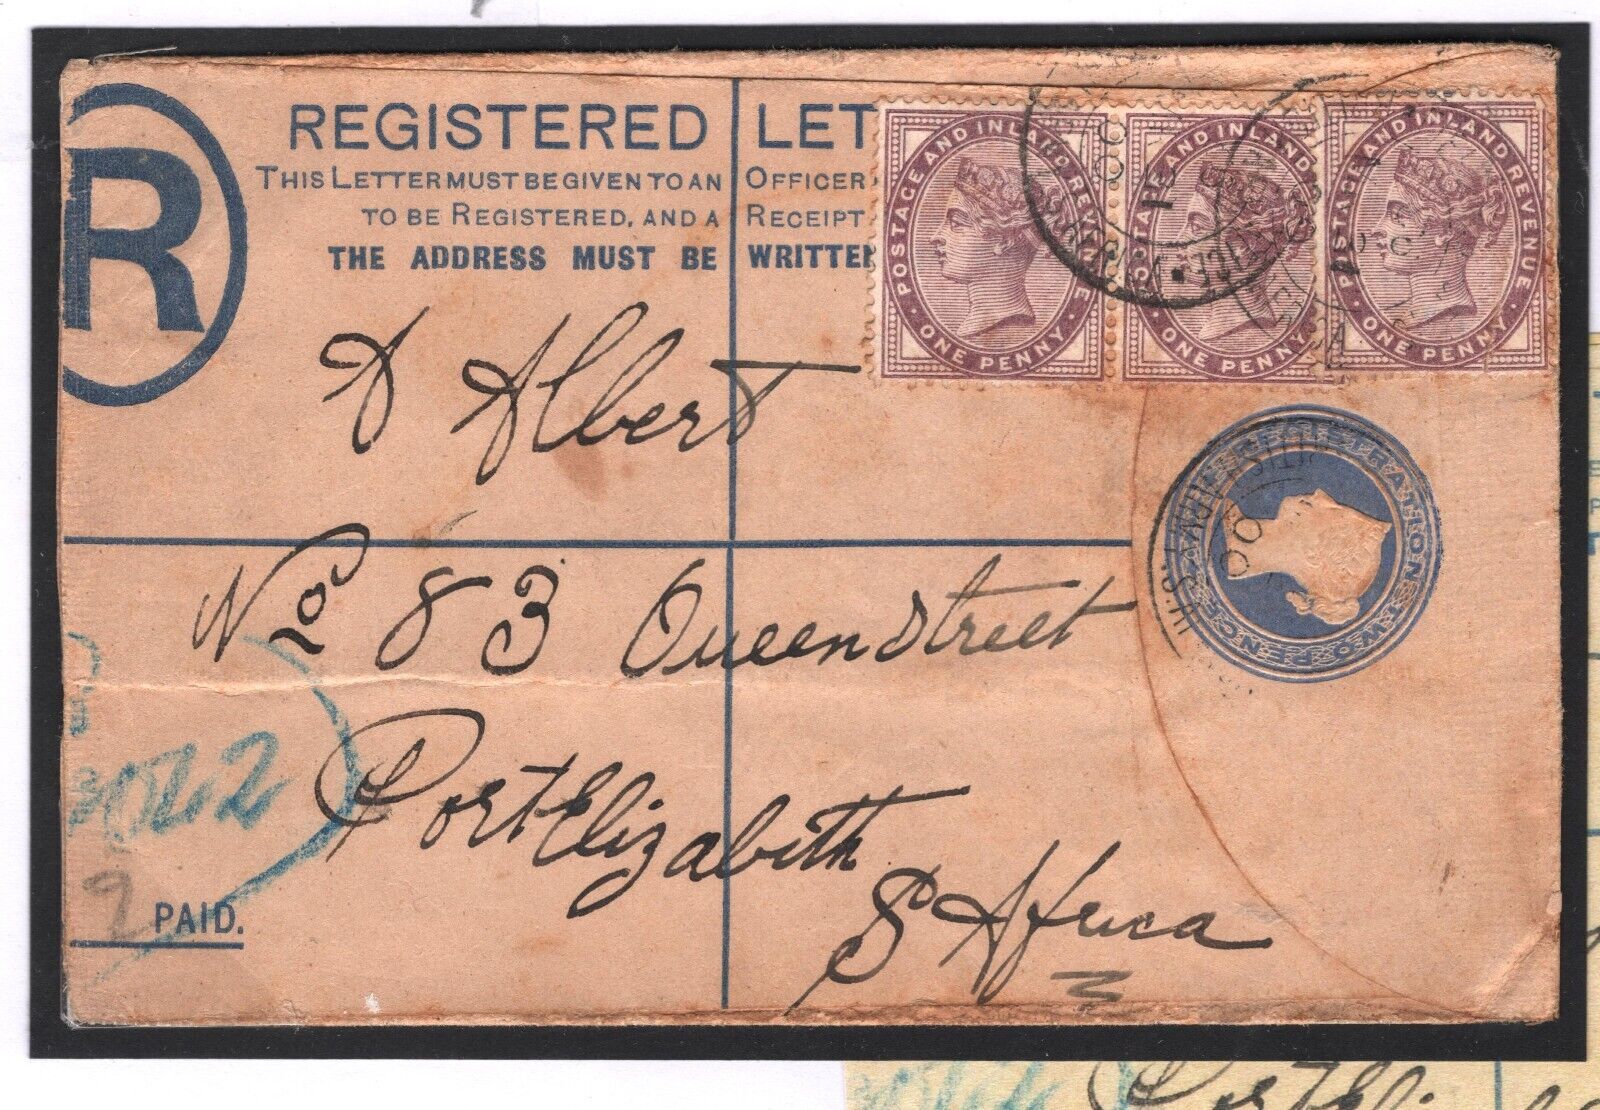 REGISTERED LET
THIS LETTER MUST BE GIVEN TO AN OFFICER
TO BE REGISTERED, AND A RECEIPT
THE ADDRESS MUST BE WRITTEN
R
POSTAGE AND INLAND REVENUE
ONE PENNY
POSTAGE AND INLAND
ONE PENNY
POSTAGE AND INLAND REVENUE
ONE PENNY
REGISTRATION TWO PENCE
BRITISH ARMY S.
00
A Albert
No 83 Queenstreet
Port Elizabeth
S Africa
PAID.